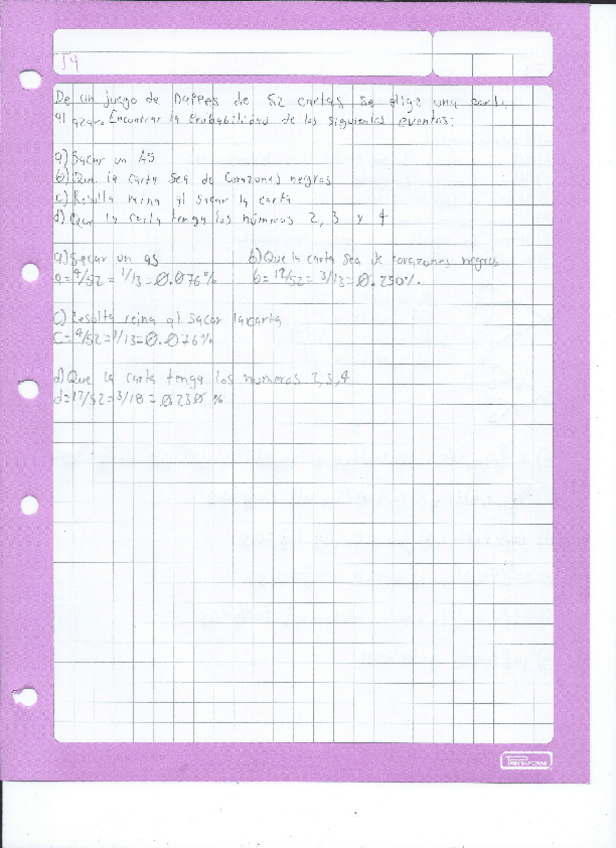 J4
De un juego de naipes de 52 cartas se elige una
al azar. Encontrar la Probabilidad de los siguientes eventos:
a) Sacar un AS
b) Que la carta sea de Corazones negros
c) Resulta reina al sacar la carta
d) Que la carta tenga los números 2, 3 y 4
a) Sacar un as b) Que la carta sea de corazones negros
a=4/52=1/13=0.076% b=12/52=3/13=0.230%.
c) Resulta reina al sacar la carta
C=4/52=1/13=0.076%
d) Que la carta tenga los numeros 2,3,4
d=12/52=3/18=.0230 %